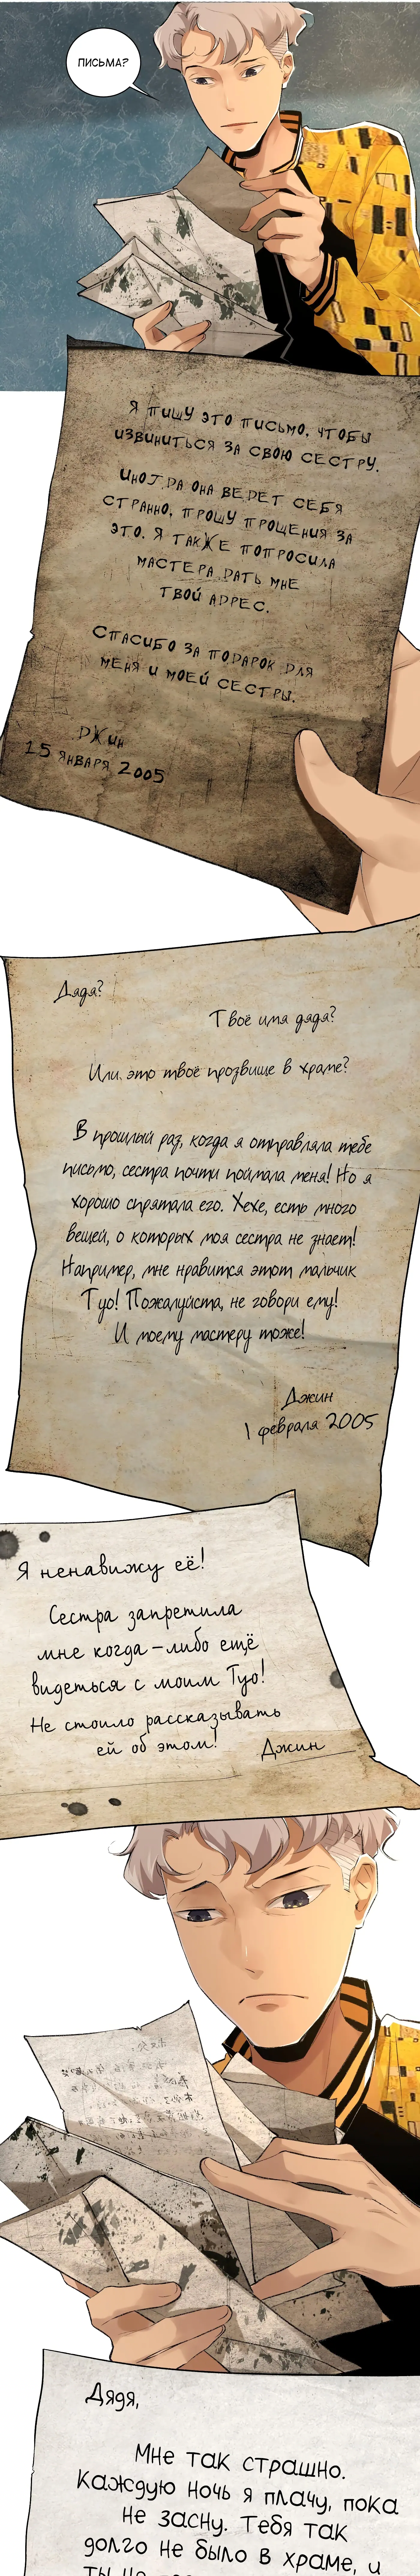 ПИСЬМА?
Я ПИШУ ЭТО ПИСЬМО, ЧТОБЫ
ИЗВИНИТЬСЯ ЗА СВОЮ СЕСТРУ.
ИНОГДА ОНА ВЕДЕТ СЕБЯ
СТРАННО, ПРОШУ ПРОЩЕНИЯ ЗА
ЭТО. Я ТАКЖЕ ПОПРОСИЛА
МАСТЕРА ДАТЬ МНЕ
ТВОЙ АДРЕС.
СПАСИБО ЗА ПОДАРОК ДЛЯ
МЕНЯ И МОЕЙ СЕСТРЫ.
ДЖИН
15 ЯНВАРЯ 2005
Дядя?
Твоё имя дядя?
Или это твоё прозвище в храме?
В прошлый раз, когда я отправляла тебе
письмо, сестра почти поймала меня! Но я
хорошо спрятала его. Хехе, есть много
вещей, о которых моя сестра не знает!
Например, мне нравится этот мальчик
Туо! Пожалуйста, не говори ему!
И моему мастеру тоже!
Джин
1 февраля 2005
Я ненавижу её!
Сестра запретила
мне когда-либо ещё
видеться с моим Туо!
Не стоило рассказывать
ей об этом!
Джин
Дядя,
Мне так страшно.
Каждую ночь я плачу, пока
не засну. Тебя так
долго не было в храме, и